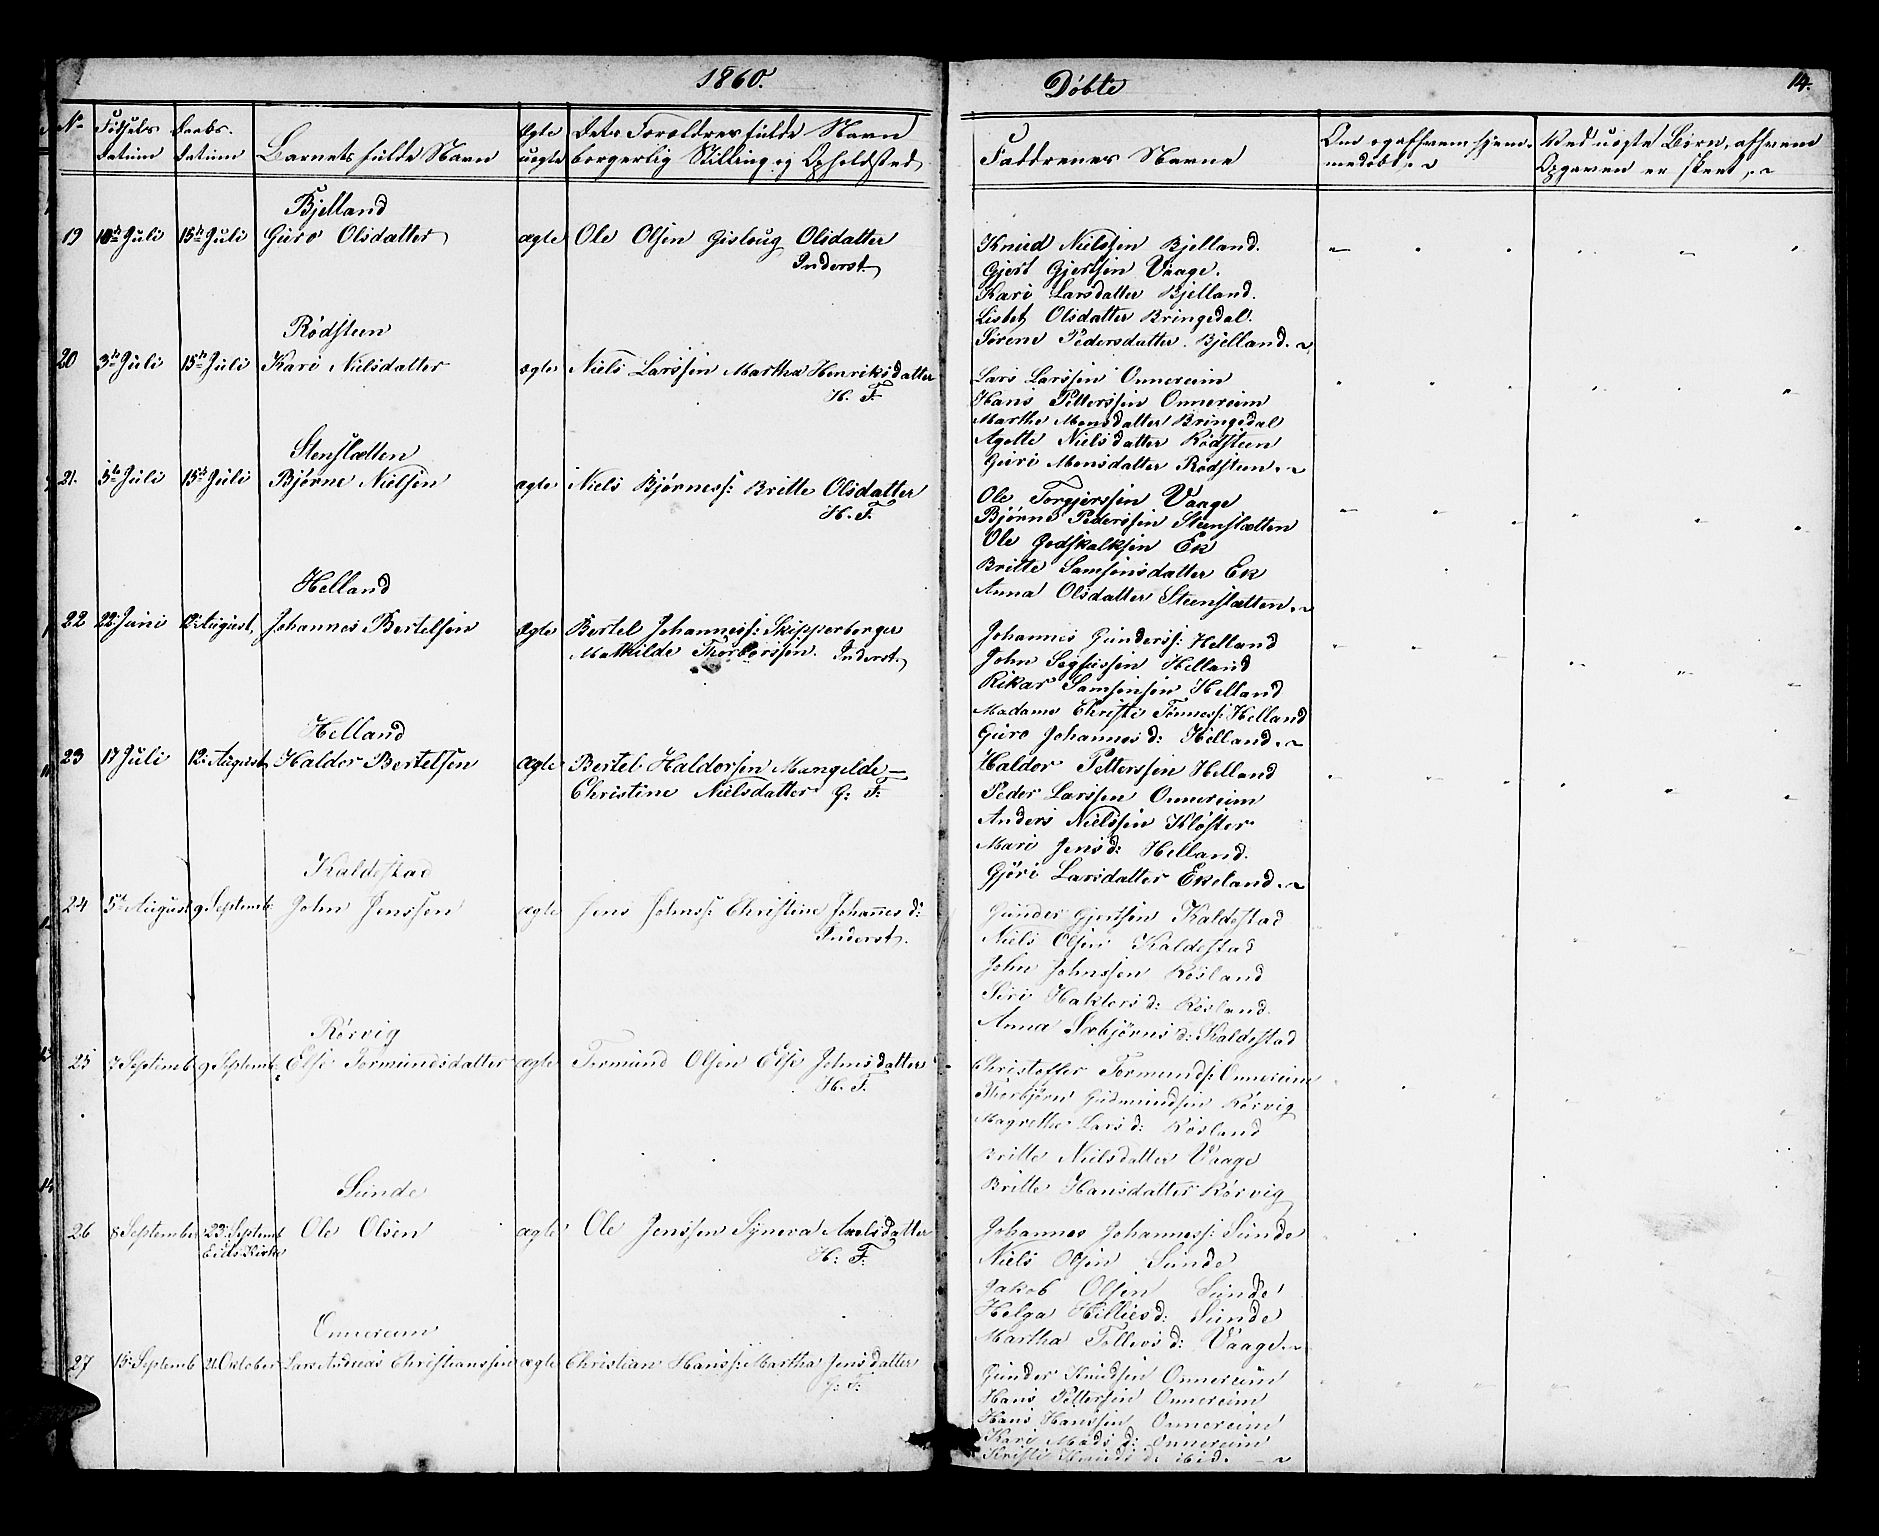 1860.
Døbte
14.
No
Fødsels Datum
Daabs. Datum
Barnets fulde Navn
Ægte uægte
Dets Forældres fulde Navn
borgerlig Stilling og Opholdsted
Faddrenes Navne
Ved uægte Børn, af hvem
Opgaven er skeet
Bjelland
19 15de Juli Guro Olsdatter ægte Ole Olsen Gislaug Olsdatter
Inderst.
Knud Nielssen Bjelland.
Gjert Gjertsen Vaage.
Kari Larsdatter Bjelland.
Lisbet Olsdatter Bringedal.
Sørene Pedersdatter. Bjelland.
Rødsteen
20 3de Juli 15de Juli Kari Nielsdatter ægte Niels Larssen Martha Henriksdatter
H. F.
Lars Larssen Onnereim
Hans Petterssen Onnereim
Marthe Monsdatter Bringedal
Agotte Nielsdatter Rødsteen
Guri Monsdatter Rødsteen.
Stenslætten
21. 5te Juli 15de Juli Bjørne Nielsen ægte Niels Bjørness: Britte Olsdatter
H. F.
Ole Torgjerssen Vaage
Bjørne Pederssen Steenslætten
Ole Godskalksen Ek
Britte Samsonsdatter Ek
Anna Olsdatter Steenslætten.
Helland
22 22 Juni 12 August Johannes Bertelsen Ægte Bertel Johanness: Skipperborger
Mathilde Thorbørssen. Inderst.
Johannes Gunderss: Helland
John Segfussen Helland
Rikar Samsonsen Helland
Madame Christi Tønness: Helland
Guro Johannes d: Helland.
Helland
23 17 Juli 12 August Haldor Bertelsen Ægte Bertel Haldorsen Mangelde
Christine Nielsdatter G: F:
Haldor Petterssen Helland
Peder Larssen Onnereim
Anders Nielssen Kloster
Mari Jens d: Helland.
Gjøri Larsdatter Ekeland.
Kaldestad
24 5te August 9 Septemb: John Jenssen ægte Jens Johnss: Christine Johannes d:
Inderst.
Gunder Gjertsen Kaldestad
Niels Olsen Kaldestad
John Johnssen Røsland
Siri Haldors d: Røsland.
Anna Sæbjørns d: Kaldestad
Rørvig
25 7 Septemb 9 Septemb: Else Tormundsdatter ægte Tormund Olsen Else Johnsdatter
H. F.
Christoffer Tormunds: Onnereim
Thorbjørn Gudmundsen Rørvig
Magrethe Lars d: Røsland
Britte Nielsdatter Vaage
Britte Hansdatter Rørvig
Sunde
26 8 September 23 Septemb Ole Olsen ægte Ole Jenssen Synova Axelsdatter
Eids Kirke
H: F:
Johannes Johanness: Sunde
Niels Olsen Sunde
Jakob Olsen Sunde
Helga Hillies d: Sunde
Martha Tollevs d: Vaage.
Onnereim
27 15 Septemb 21 October Lars Andreas Christianssen ægte Christian Hanss: Martha Jensdatter
G: F:
Gunder Knudsen Onnereim
Hans Pettersen Onnereim
Hans Hanssen Onnereim
Kari Mads d: Onnereim
Kristi Knuds d: ibid.